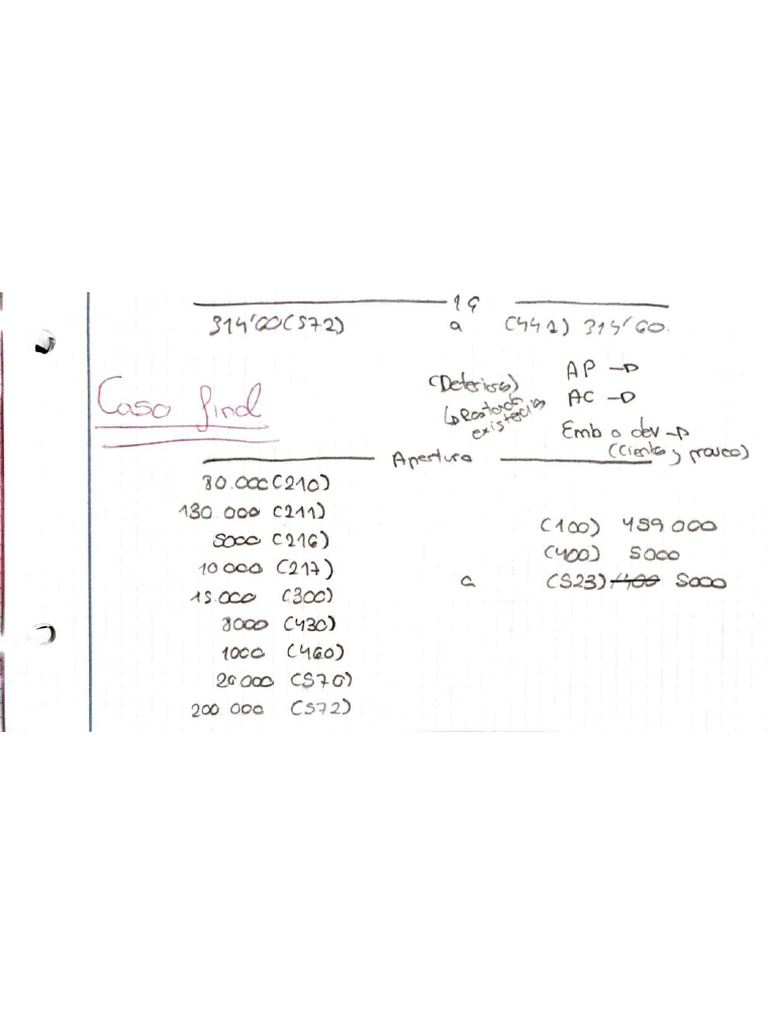 19
314'60 (572) a (441) 314'60.
Caso final
(Deterioros)
existencias
AP →
AC →
Emb o dev →
(Clientes y proveed)
Apertura
80.000 (210)
130.000 (211)
5000 (216)
10000 (217)
15.000 (300)
8000 (430)
1000 (460)
20000 (570)
200.000 (572)
a
(100) 459000
(400) 5000
(523) 5000